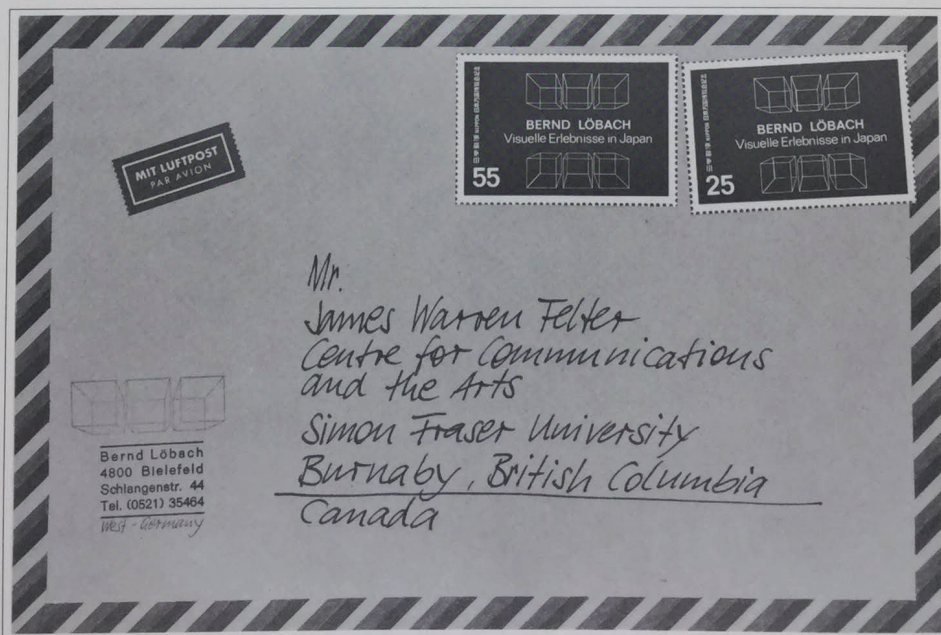 MIT LUFTPOST
PAR AVION
BERND LÖBACH
Visuelle Erlebnisse in Japan
55
BERND LÖBACH
Visuelle Erlebnisse in Japan
25
Mr.
James Warren Felter
Centre for Communications
and the Arts
Simon Fraser University
Burnaby, British Columbia
Canada
Bernd Löbach
4800 Bielefeld
Schlangenstr. 44
Tel. (0521) 35464
West-Germany